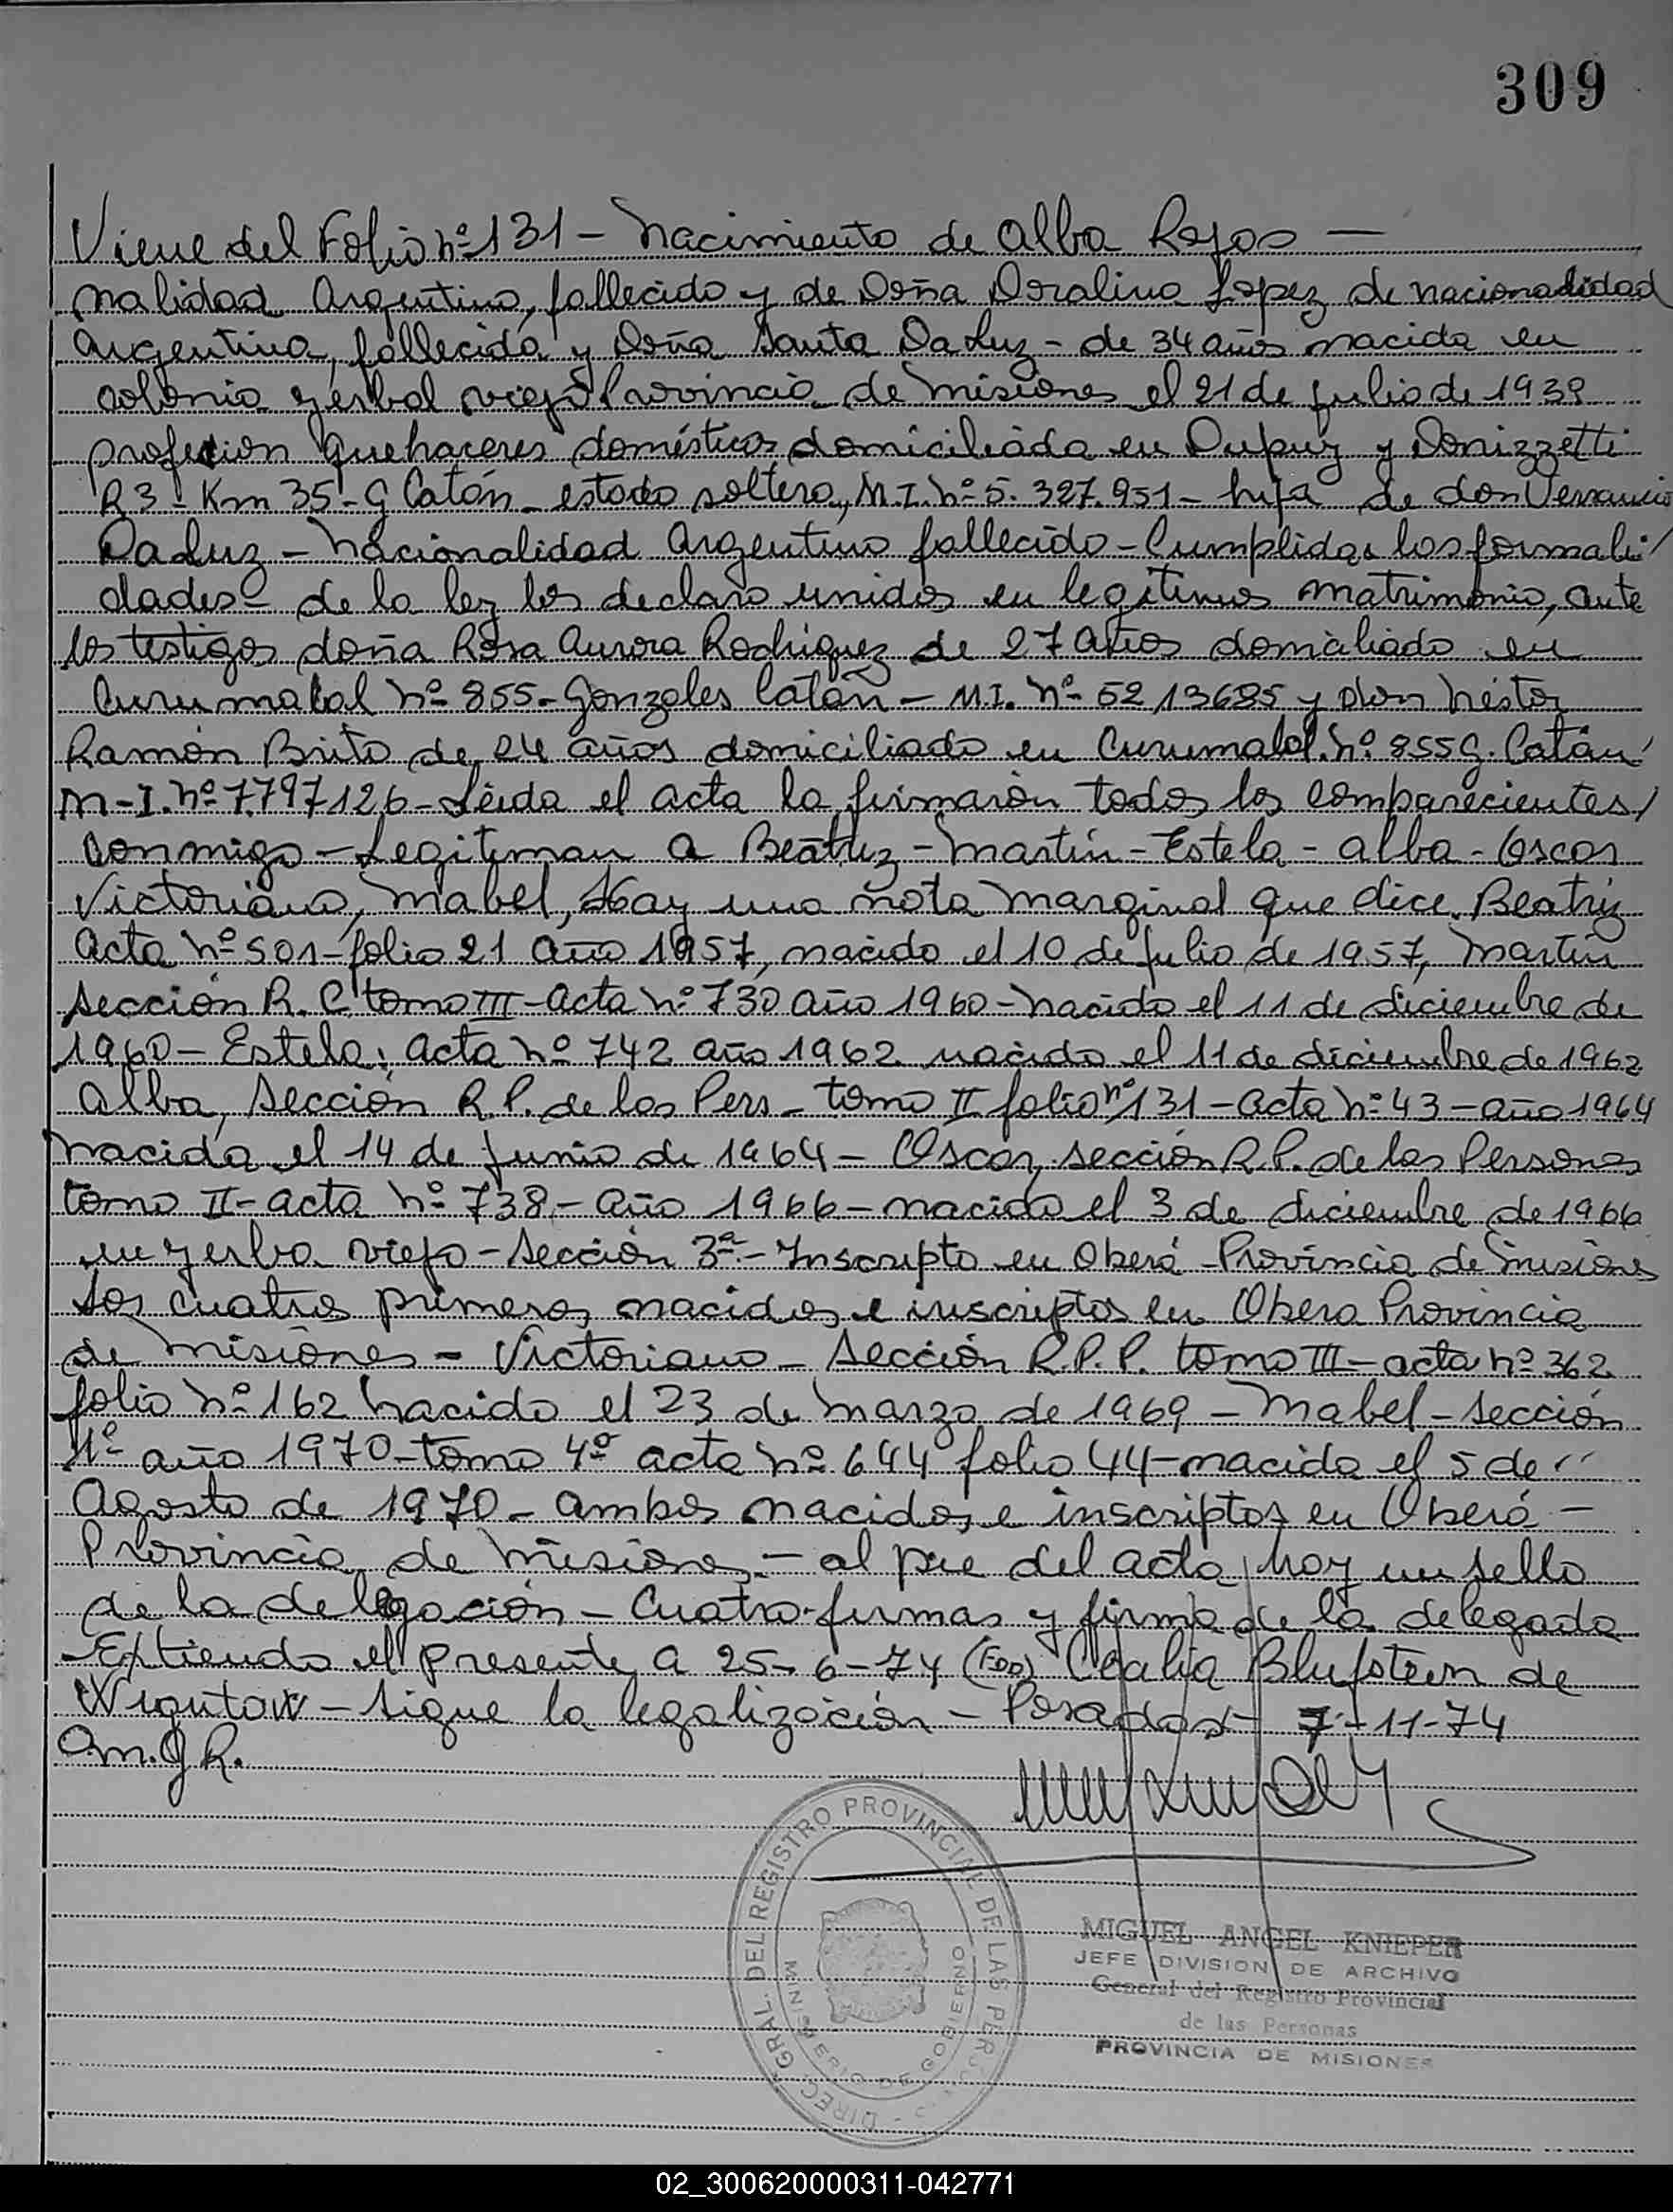 309
Viene del Folio nº 131 - Nacimiento de Alba Rojas —
nalidad Argentino, fallecido y de Doña Doralina Lopez de nacionalidad
Argentina, fallecida y Doña Santa Da Luz - de 34 años nacida en
colonia yerbal viejo Provincia de Misiones el 21 de julio de 1939
profesion quehaceres domésticos domiciliada en Dupuy y Donizzetti
R3 - Km 35 - G Catán - estado soltera, M.I. Nº 5.327.951 - hija de don Venancio
Da Luz - Nacionalidad Argentino fallecido - Cumplidas las formali/
dades - de la ley los declaro unidos en legítimos matrimonio, ante
los testigos doña Rosa Aurora Rodriguez de 27 años domiciliado en
Curumalal nº 855 - Gonzales Catán - M.I. nº 5213685 y don Néstor
Ramón Brito de 24 años domiciliado en Curumalal nº 855 G. Catán
M-I. nº 7.797126 - Leída el acta la firmarón todos los comparecientes/
conmigo - Legitiman a Beatriz - Martín - Estela - Alba - Oscar
Victoriano, Mabel, Hay una nota marginal que dice. Beatriz
Acta nº 501 - folio 21 año 1957, nacido el 10 de julio de 1957, Martín
sección R. C tomo III - Acta nº 730 año 1960 - nacido el 11 de diciembre de
1960 - Estela: acta nº 742 año 1962 nacido el 11 de diciembre de 1962
Alba, Sección R.P. de las Pers - tomo II folio nº 131 - acta nº 43 - año 1964
nacida el 14 de Junio de 1964 - Oscar, sección R.P. de las Personas
tomo II - acta nº 738 - año 1966 - nacido el 3 de diciembre de 1966
en yerba viejo - Sección 3ª - Inscripto en Oberá - Provincia de Misiones
Los cuatros primeros nacidos e inscriptos en Obera Provincia
de Misiones - Victoriano - Sección R.P.P. tomo III - acta nº 362
folio nº 162 nacido el 23 de Marzo de 1969 - Mabel - Sección
1º año 1970 - tomo 4º acta nº 644 folio 44 - nacida el 5 de "
Agosto de 1970 - ambos nacidos e inscriptos en Oberá -
Provincia de Misiones - al pie del acta hay un sello
de la delegación - Cuatro firmas y firma de la delegada
- Extiendo el presente a 25-6-74 (Fdo) Cecilia Blufstein de
- Sigue la legalización - Posadas - 7-11-74
MIGUEL ANGEL KNIEPER
JEFE DIVISION DE ARCHIVO
General del Registro Provincial
de las Personas
PROVINCIA DE MISIONES
DIREC. GRAL. DEL REGISTRO PROVINCIAL DE LAS PERSONAS
MINISTERIO DE GOBIERNO
02_300620000311-042771